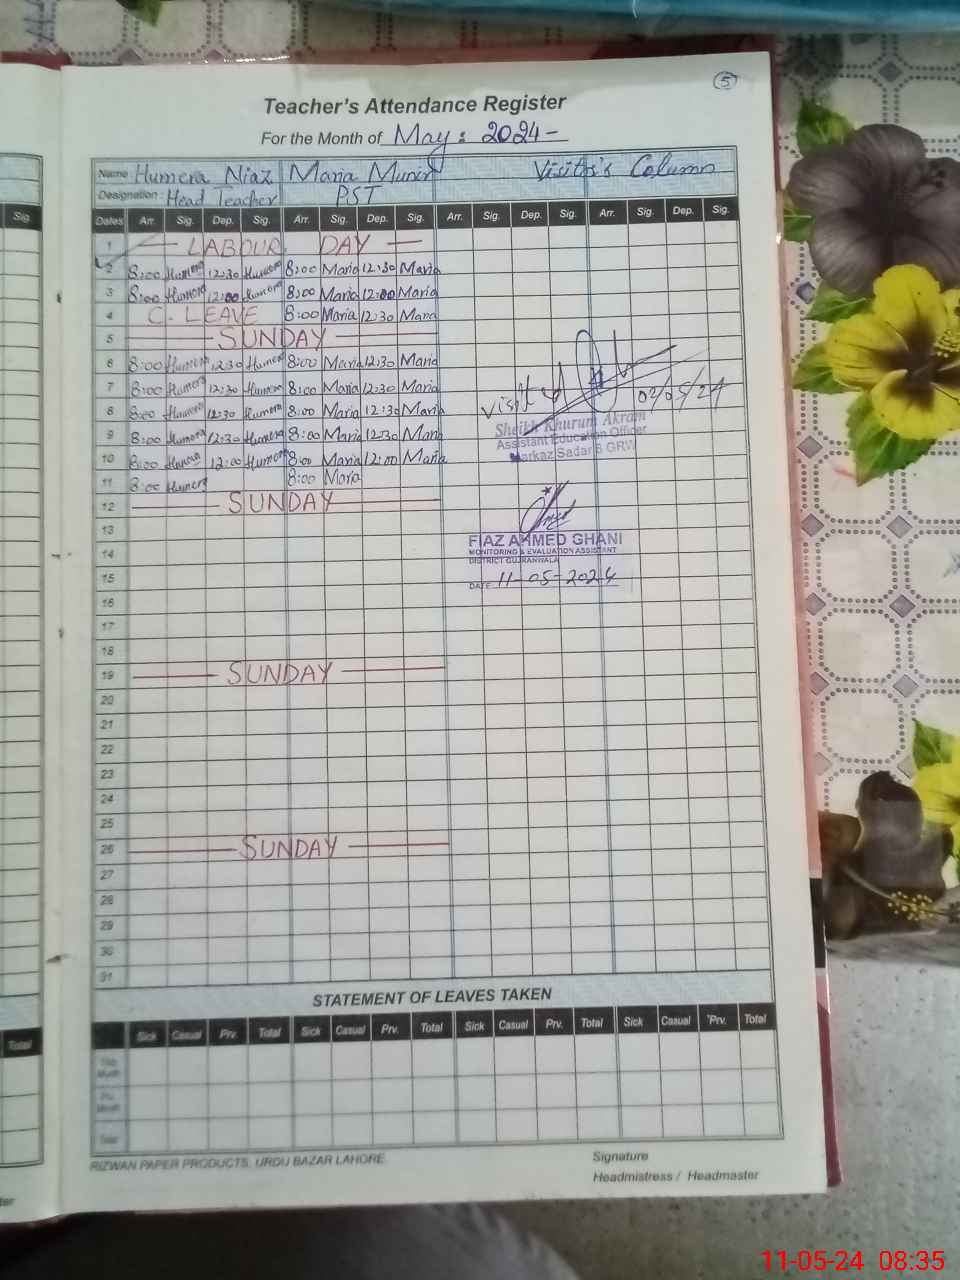 5
Teacher's Attendance Register
For the Month of May: 2024-
Name Humera Niaz Maria Munir Visitor's Column
Designation: Head Teacher PST
Sig.
Dates Arr. Sig. Dep. Sig. Arr. Sig. Dep. Sig. Arr. Sig. Dep. Sig. Arr. Sig. Dep. Sig.
1 LABOUR DAY
2 8:00 Humera 12:30 Humera 8:00 Maria 12:30 Maria
3 8:00 Humera 12:00 Humera 8:00 Maria 12:00 Maria
4 C. LEAVE 8:00 Maria 12:30 Maria
5 SUNDAY
6 8:00 Humera 12:30 Humera 8:00 Maria 12:30 Maria
7 8:00 Humera 12:30 Humera 8:00 Maria 12:30 Maria
8 8:00 Humera 12:30 Humera 8:00 Maria 12:30 Maria
Visited 02/05/24
Sheikh Khurum Akram
Assistant Education Officer
Markaz Sadar 6 GRW
9 8:00 Humera 12:30 Humera 8:00 Maria 12:30 Maria
10 8:00 Humera 12:00 Humera 8:00 Maria 12:00 Maria
11 8:00 Humera 8:00 Maria
12 SUNDAY
13
FIAZ AHMED GHANI
MONITORING & EVALUATION ASSISTANT
DISTRICT GUJRANWALA
DATE 11-05-2024
14
15
16
17
18
19 SUNDAY
20
21
22
23
24
25
26 SUNDAY
27
28
29
30
31
STATEMENT OF LEAVES TAKEN
Total
Sick Casual Prv. Total Sick Casual Prv. Total Sick Casual Prv. Total Sick Casual Prv. Total
This Month
Prv. Month
Total
RIZWAN PAPER PRODUCTS, URDU BAZAR LAHORE.
Signature
Headmistress / Headmaster
11-05-24 08:35